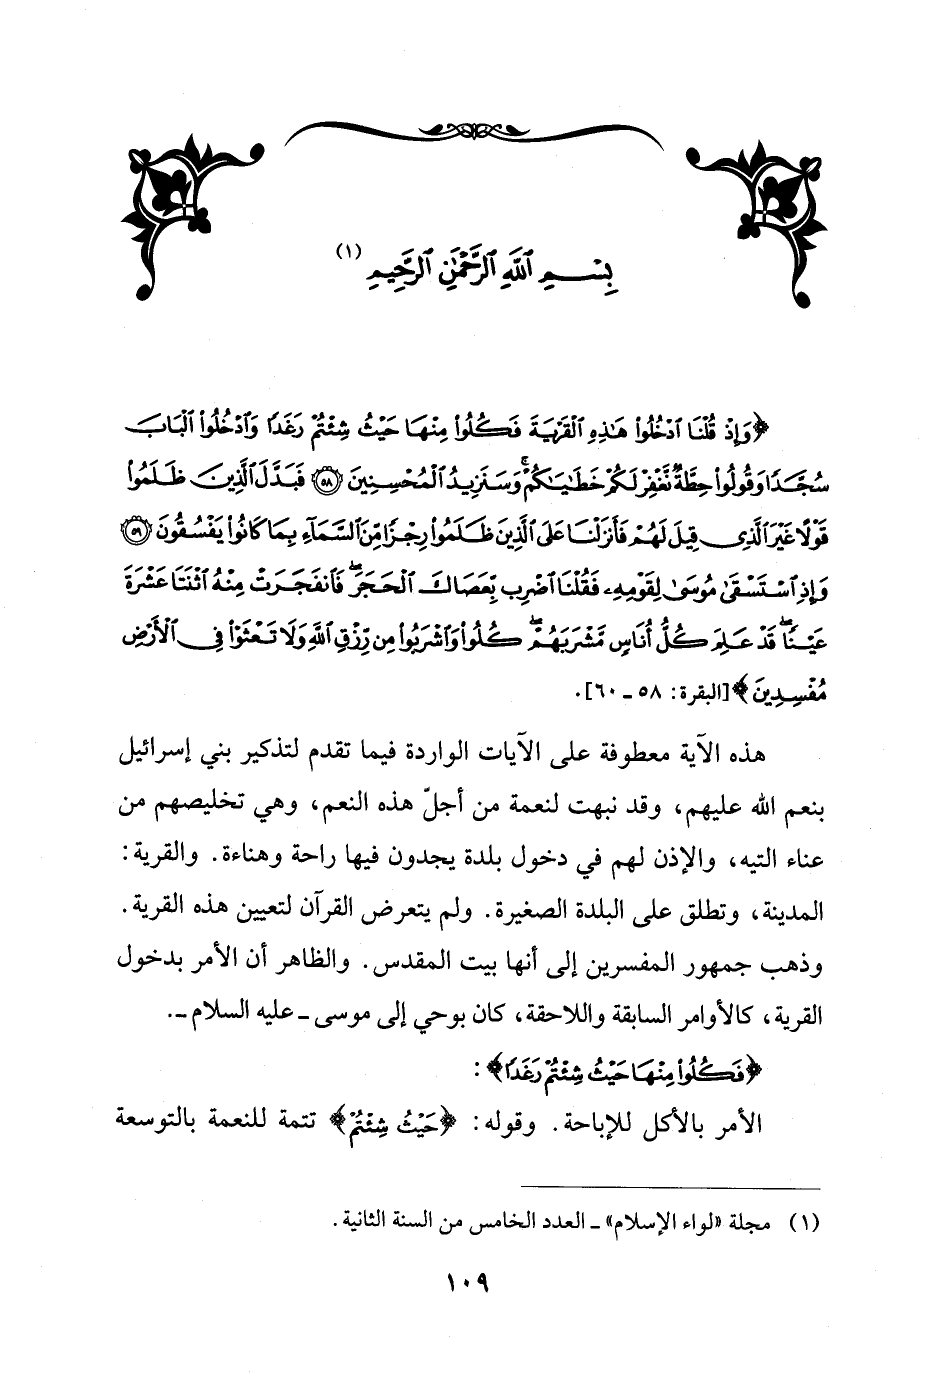 بِسْمِ ٱللَّهِ ٱلرَّحْمَٰنِ ٱلرَّحِيمِ (١)
﴿وَإِذْ قُلْنَا ٱدْخُلُوا۟ هَٰذِهِ ٱلْقَرْيَةَ فَكُلُوا۟ مِنْهَا حَيْثُ شِئْتُمْ رَغَدًا وَٱدْخُلُوا۟ ٱلْبَابَ
سُجَّدًا وَقُولُوا۟ حِطَّةٌ نَّغْفِرْ لَكُمْ خَطَٰيَٰكُمْ ۚ وَسَنَزِيدُ ٱلْمُحْسِنِينَ ۝٥٨ فَبَدَّلَ ٱلَّذِينَ ظَلَمُوا۟
قَوْلًا غَيْرَ ٱلَّذِى قِيلَ لَهُمْ فَأَنزَلْنَا عَلَى ٱلَّذِينَ ظَلَمُوا۟ رِجْزًا مِّنَ ٱلسَّمَآءِ بِمَا كَانُوا۟ يَفْسُقُونَ ۝٥٩
وَإِذِ ٱسْتَسْقَىٰ مُوسَىٰ لِقَوْمِهِۦ فَقُلْنَا ٱضْرِب بِّعَصَاكَ ٱلْحَجَرَ ۖ فَٱنفَجَرَتْ مِنْهُ ٱثْنَتَا عَشْرَةَ
عَيْنًا ۖ قَدْ عَلِمَ كُلُّ أُنَاسٍ مَّشْرَبَهُمْ ۖ كُلُوا۟ وَٱشْرَبُوا۟ مِن رِّزْقِ ٱللَّهِ وَلَا تَعْثَوْا۟ فِى ٱلْأَرْضِ
مُفْسِدِينَ﴾ [البقرة: ٥٨ ـ ٦٠].
هذه الآية معطوفة على الآيات الواردة فيما تقدم لتذكير بني إسرائيل
بنعم الله عليهم، وقد نبهت لنعمة من أجلّ هذه النعم، وهي تخليصهم من
عناء التيه، والإذن لهم في دخول بلدة يجدون فيها راحة وهناءة. والقرية:
المدينة، وتطلق على البلدة الصغيرة. ولم يتعرض القرآن لتعيين هذه القرية.
وذهب جمهور المفسرين إلى أنها بيت المقدس. والظاهر أن الأمر بدخول
القرية، كالأوامر السابقة واللاحقة، كان بوحي إلى موسى ـ عليه السلام ـ.
﴿فَكُلُوا۟ مِنْهَا حَيْثُ شِئْتُمْ رَغَدًا﴾:
الأمر بالأكل للإباحة. وقوله: ﴿حَيْثُ شِئْتُمْ﴾ تتمة للنعمة بالتوسعة
(١) مجلة «لواء الإسلام» ـ العدد الخامس من السنة الثانية.
١٠٩